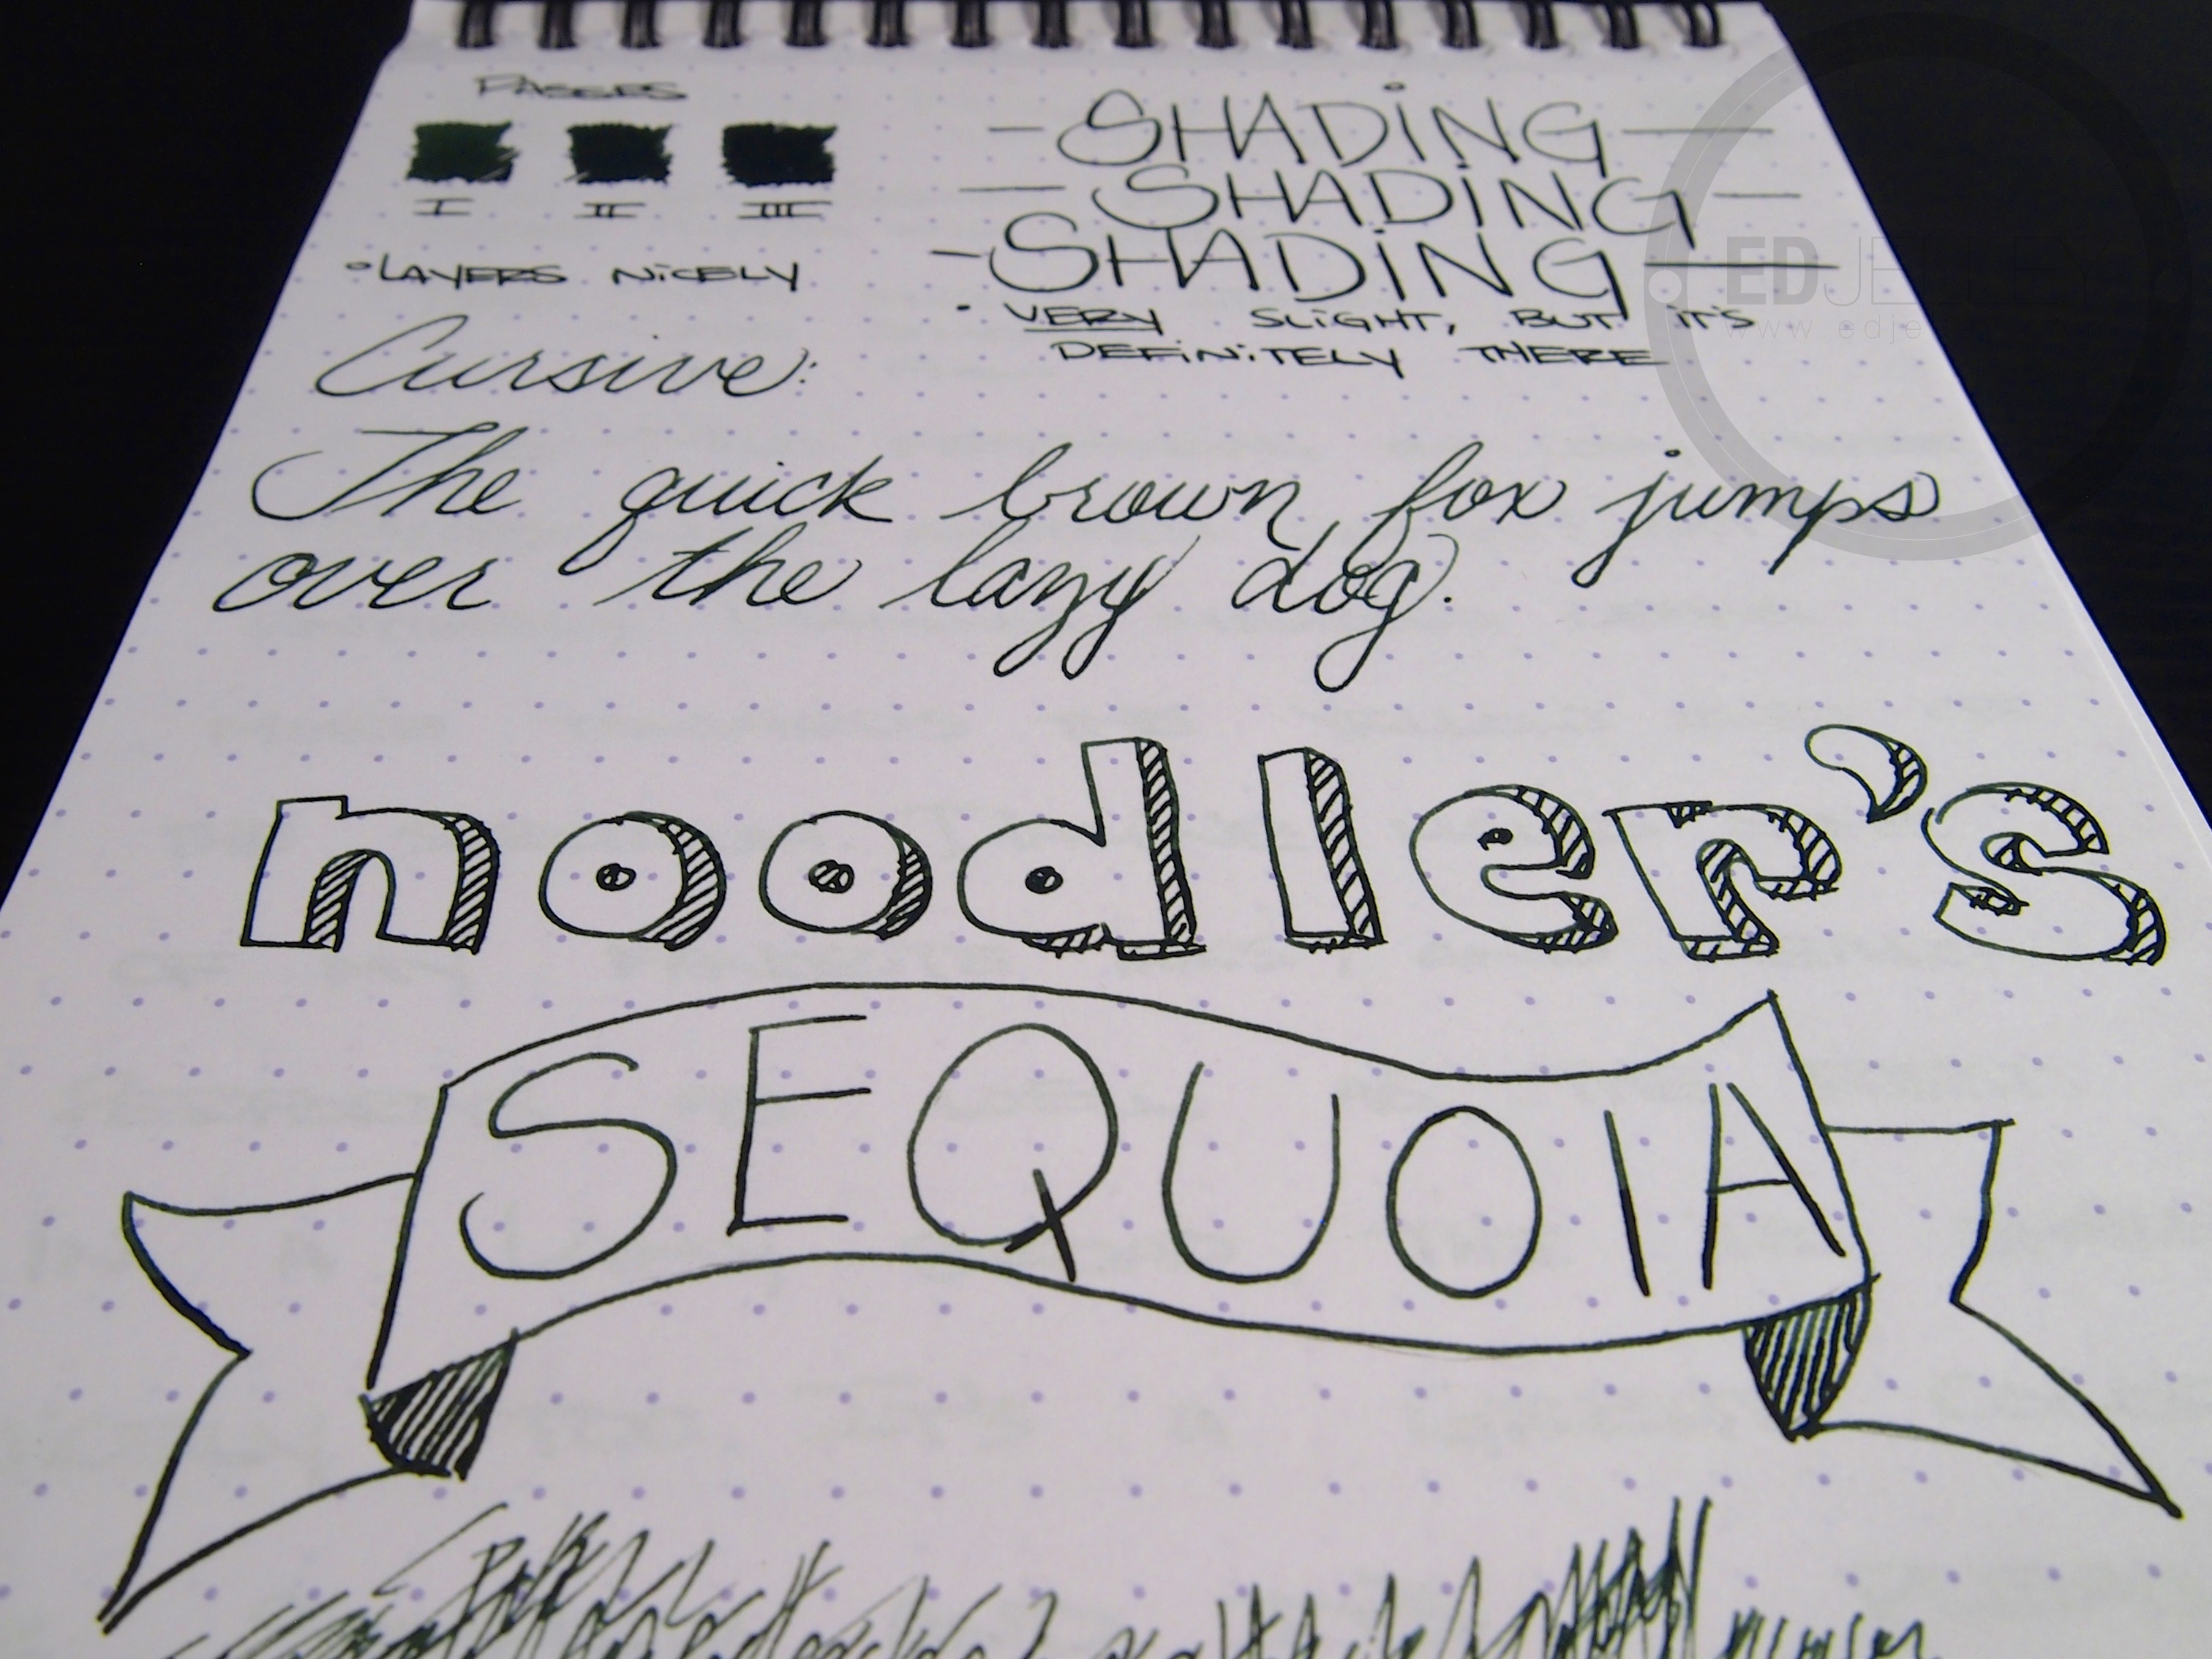 PASSES
I II III
• LAYERS NiCELY
- SHADiNG -
- SHADiNG -
- SHADiNG -
• VERY SLiGHT, BUT iT'S
DEFiNiTELY THERE
Cursive:
The quick brown fox jumps
over the lazy dog.
noodler's
SEQUOIA
EDJELLEY